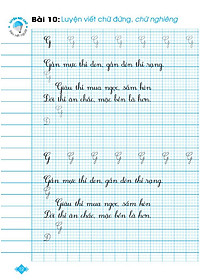 Bài 10: Luyện viết chữ đứng, chữ nghiêng
G G G G G G G
Gần mực thì đen, gần đèn thì rạng.
G
Giàu thì mua ngọc, sắm hòn
Đói thì ăn chắc, mặc bền là hơn.
G
Đ
G G G G G G G
Gần mực thì đen, gần đèn thì rạng.
G
Giàu thì mua ngọc, sắm hòn
Đói thì ăn chắc, mặc bền là hơn.
G
Đ